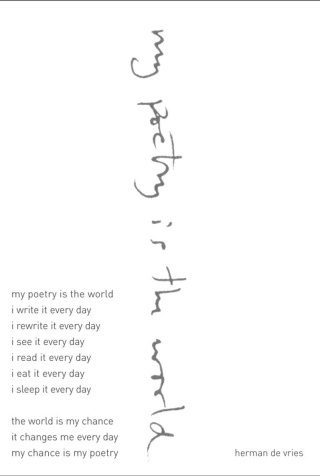 my poetry is the world
my poetry is the world
i write it every day
i rewrite it every day
i see it every day
i read it every day
i eat it every day
i sleep it every day

the world is my chance
it changes me every day
my chance is my poetry
herman de vries